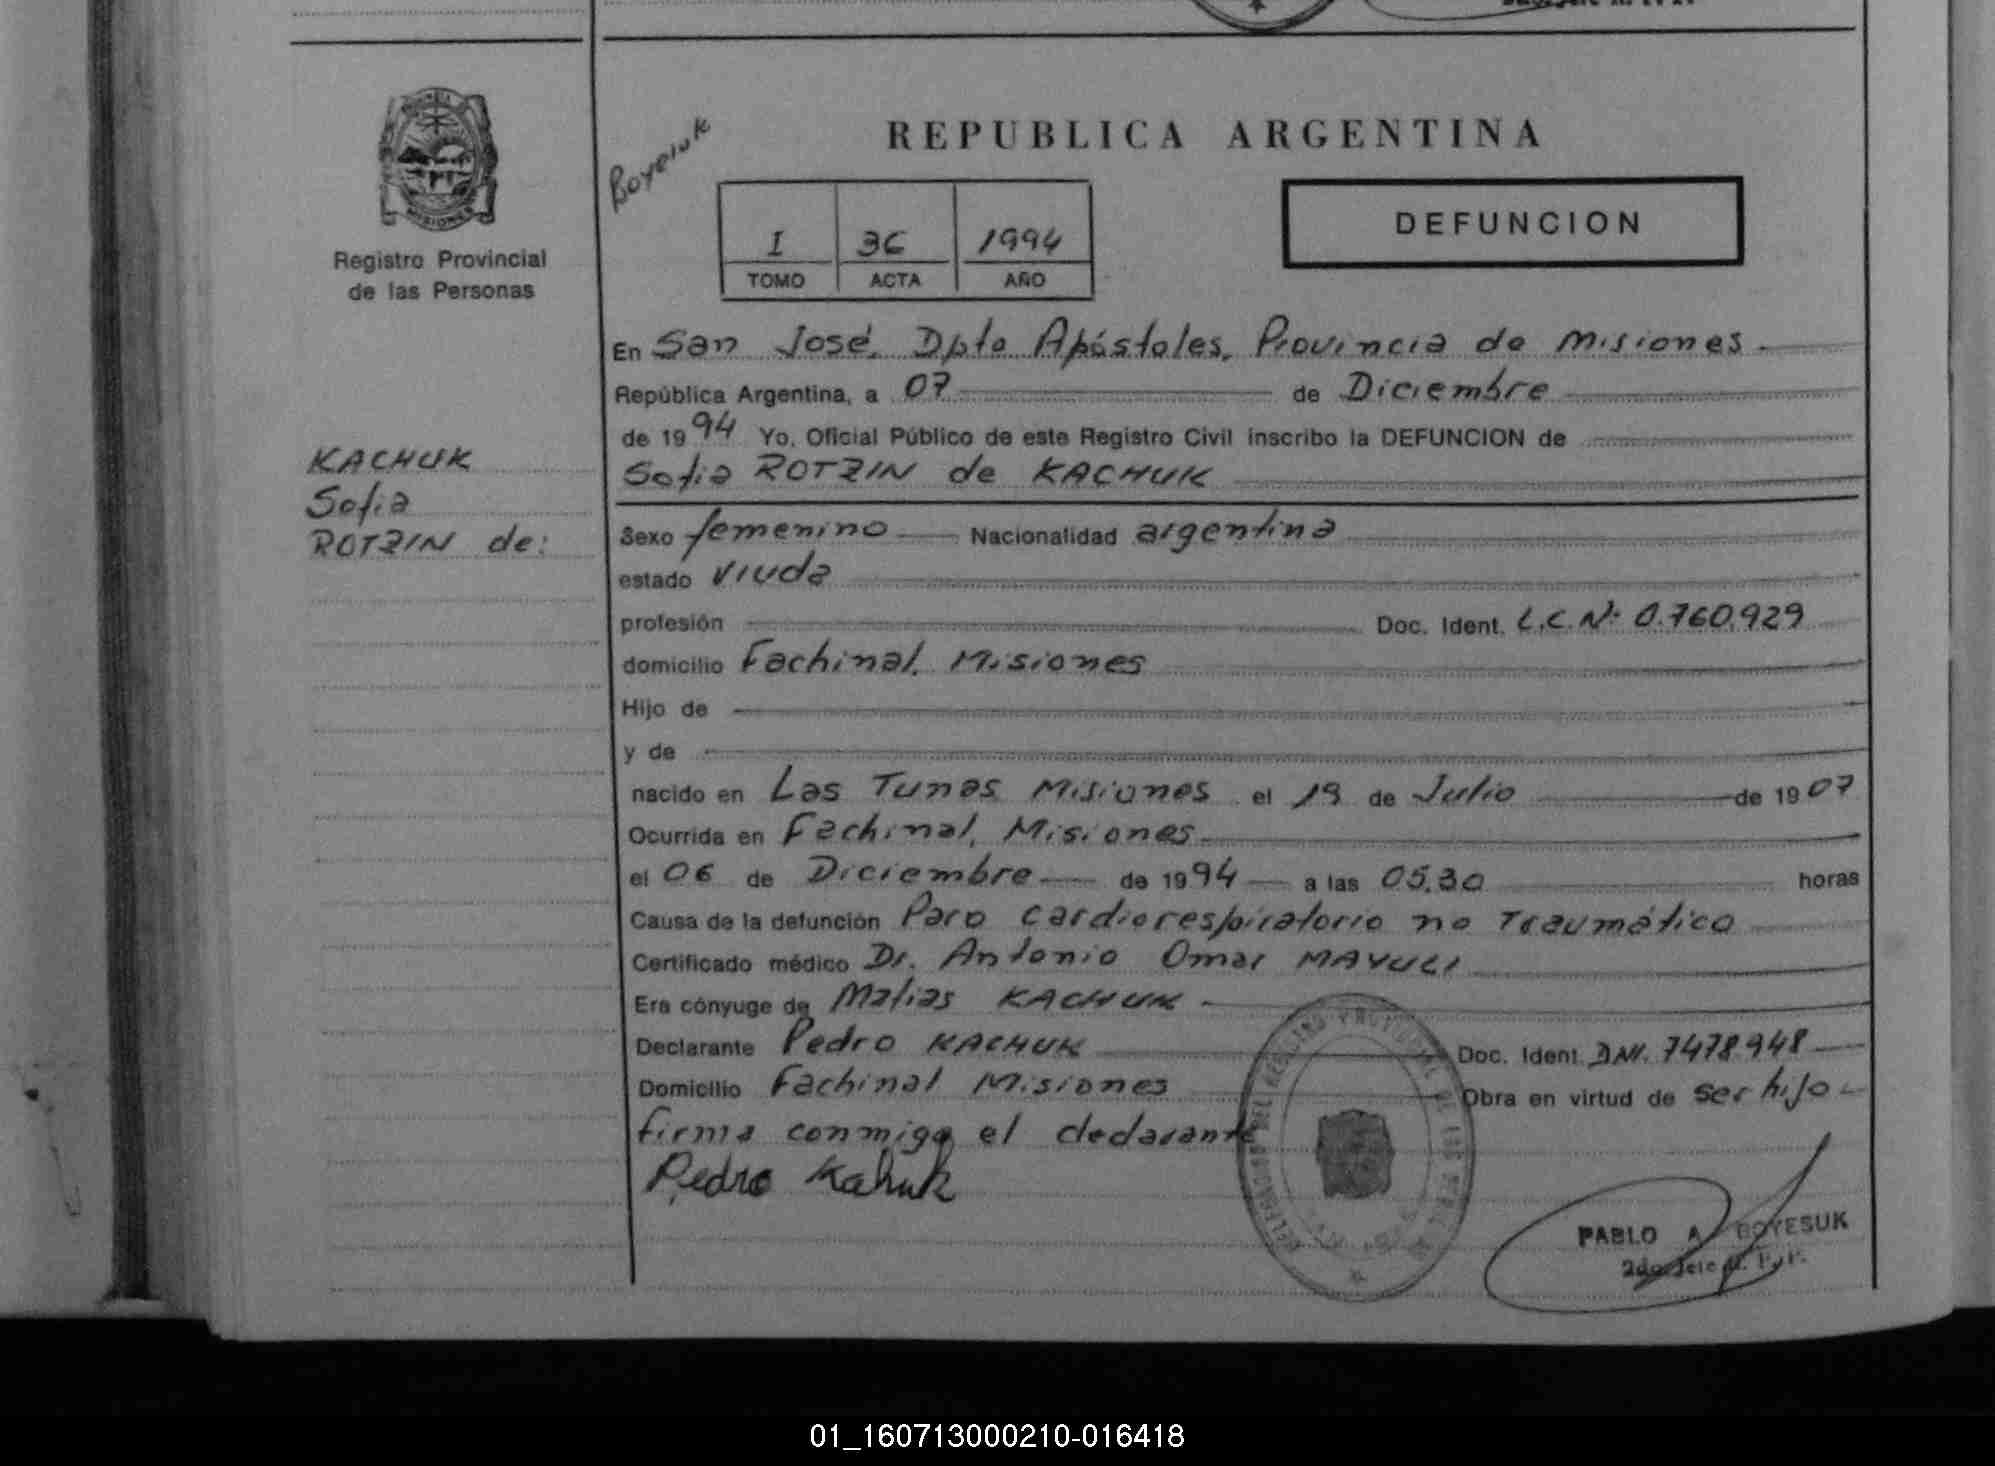 PROVINCIA DE
MISIONES
Registro Provincial
de las Personas
KACHUK
Sofia
ROTZIN de:
REPUBLICA ARGENTINA
I 36 1994
TOMO ACTA AÑO
DEFUNCION
En San José, Dpto Apóstoles, Provincia de Misiones
República Argentina, a 07 de Diciembre
de 1994 Yo, Oficial Público de este Registro Civil inscribo la DEFUNCION de
Sofia ROTZIN de KACHUK
Sexo femenino Nacionalidad argentina
estado viuda
profesión Doc. Ident. L.C. Nº 0.760.929
domicilio Fachinal, Misiones
Hijo de
y de
nacido en Las Tunas Misiones el 19 de Julio de 1907
Ocurrida en Fachinal, Misiones
el 06 de Diciembre de 1994 a las 05.30 horas
Causa de la defunción Paro cardiorespiratorio no Traumático
Certificado médico Dr. Antonio Omar
Era cónyuge de Matias KACHUK
Declarante Pedro KACHUK Doc. Ident. DNI. 7478.948
Domicilio Fachinal Misiones Obra en virtud de ser hijo
firma conmigo el declarante
Pedro Kahuk
PABLO A BOYESUK
01_160713000210-016418